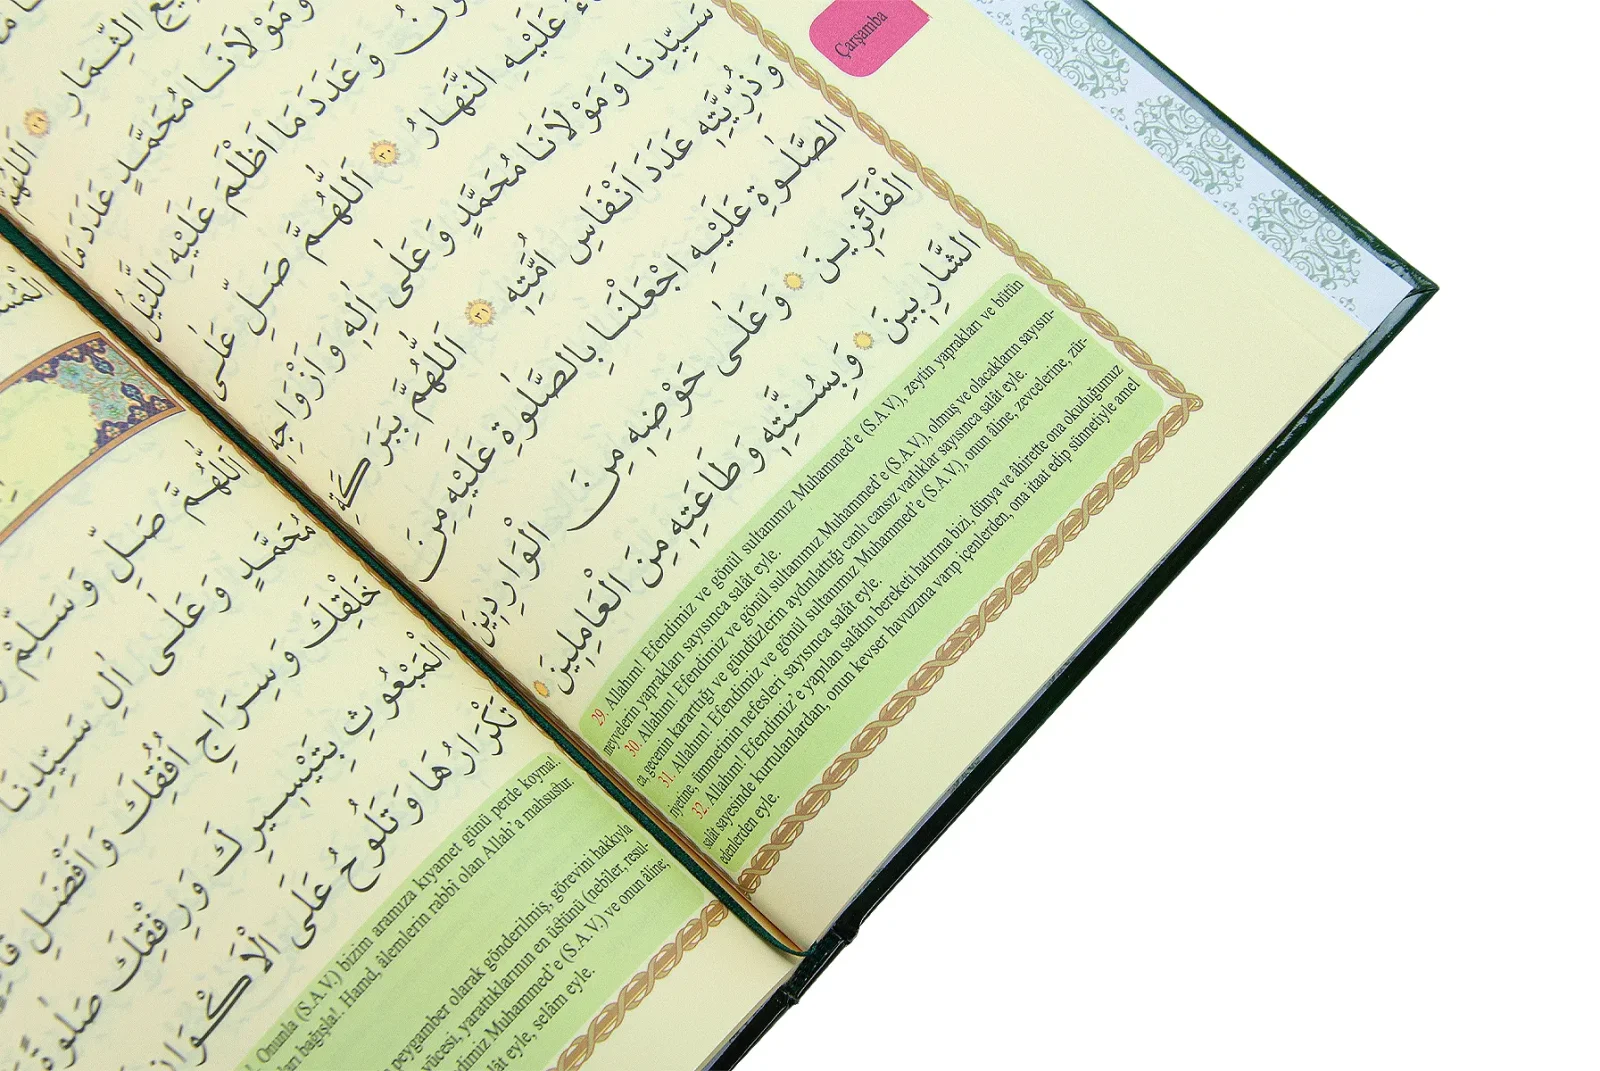 Çarşamba
الثِّمَارِ ﴿٢٩﴾ اَللّٰهُمَّ
وَمَوْلَانَا مُحَمَّدٍ عَدَدَ مَا
وَعَدَدَ مَا اَظْلَمَ عَلَيْهِ اللَّيْلُ
عَلَيْهِ النَّهَارُ ﴿٣٠﴾ اَللّٰهُمَّ صَلِّ عَلٰى
سَيِّدِنَا وَمَوْلَانَا مُحَمَّدٍ وَعَلٰى اٰلِهِ وَاَزْوَاجِهِ
وَذُرِّيَّتِهِ عَدَدَ اَنْفَاسِ اُمَّتِهِ ﴿٣١﴾ اَللّٰهُمَّ بِبَرَكَةِ
الصَّلٰوةِ عَلَيْهِ اجْعَلْنَا بِالصَّلٰوةِ عَلَيْهِ مِنَ
الْفَائِزِينَ وَعَلٰى حَوْضِهِ مِنَ الْوَارِدِينَ
الشَّارِبِينَ وَبِسُنَّتِهِ وَطَاعَتِهِ مِنَ الْعَامِلِينَ
29. Allahım! Efendimiz ve gönül sultanımız Muhammed'e (S.A.V.), zeytin yaprakları ve bütün
meyvelerin yaprakları sayısınca salât eyle.
30. Allahım! Efendimiz ve gönül sultanımız Muhammed'e (S.A.V.), olmuş ve olacakların sayısın-
ca, gecenin kararttığı ve gündüzlerin aydınlattığı canlı cansız varlıklar sayısınca salât eyle.
31. Allahım! Efendimiz ve gönül sultanımız Muhammed'e (S.A.V.), onun âline, zevcelerine, zür-
riyetine, ümmetinin nefesleri sayısınca salât eyle.
32. Allahım! Efendimiz'e yapılan salâtın bereketi hatırına bizi, dünya ve âhirette ona okuduğumuz
salât sayesinde kurtulanlardan, onun kevser havuzuna varıp içenlerden, ona itaat edip sünnetiyle amel
edenlerden eyle.
اَللّٰهُمَّ صَلِّ وَسَلِّمْ
مُحَمَّدٍ وَعَلٰى اٰلِ سَيِّدِنَا
خَلْقِكَ وَسِرَاجِ اُفُقِكَ وَاَفْضَلِ
الْمَبْعُوثِ بِتَيْسِيرِكَ وَرِفْقِكَ صَلٰوةً
تَكْرَارُهَا وَتَلُوحُ عَلَى الْاَكْوَانِ
Onunla (S.A.V.) bizim aramıza kıyamet günü perde koyma!
bağışla!. Hamd, âlemlerin rabbî olan Allah'a mahsustur.
peygamber olarak gönderilmiş, görevini hakkıyla
yücesi, yarattıklarının en üstünü (nebîler, resul-
Muhammed'e (S.A.V.) ve onun âline;
salât eyle, selâm eyle.